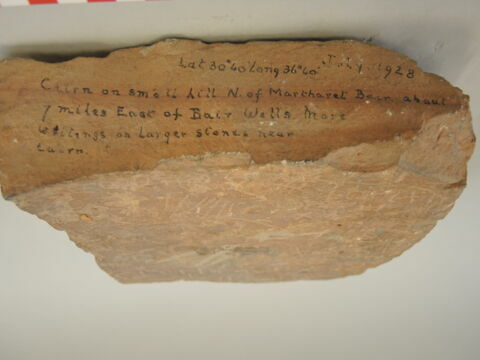 Lat 30°40' Long 36°40' July 1928
Cairn on small hill N. of Marthared Bair about
7 miles East of Bair Wells. More
writings on larger stones near
cairn.